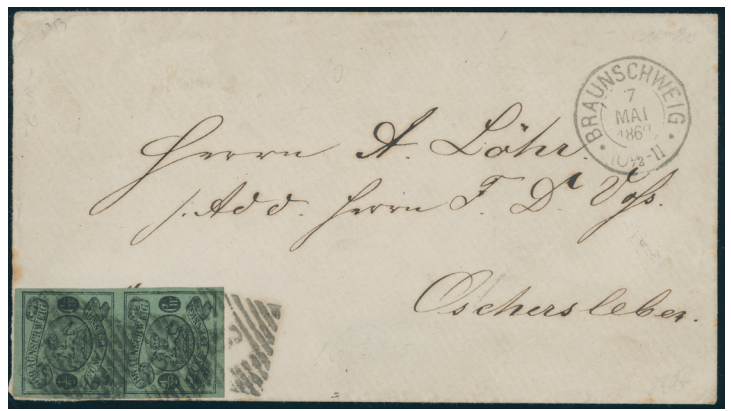 BRAUNSCHWEIG
7
MAI
186
10½-11
Herrn A. Löhr.
p. Add. Herrn F. D. Voß.
Oschersleben.
BRAUNSCHWEIG
BRAUNSCHWEIG